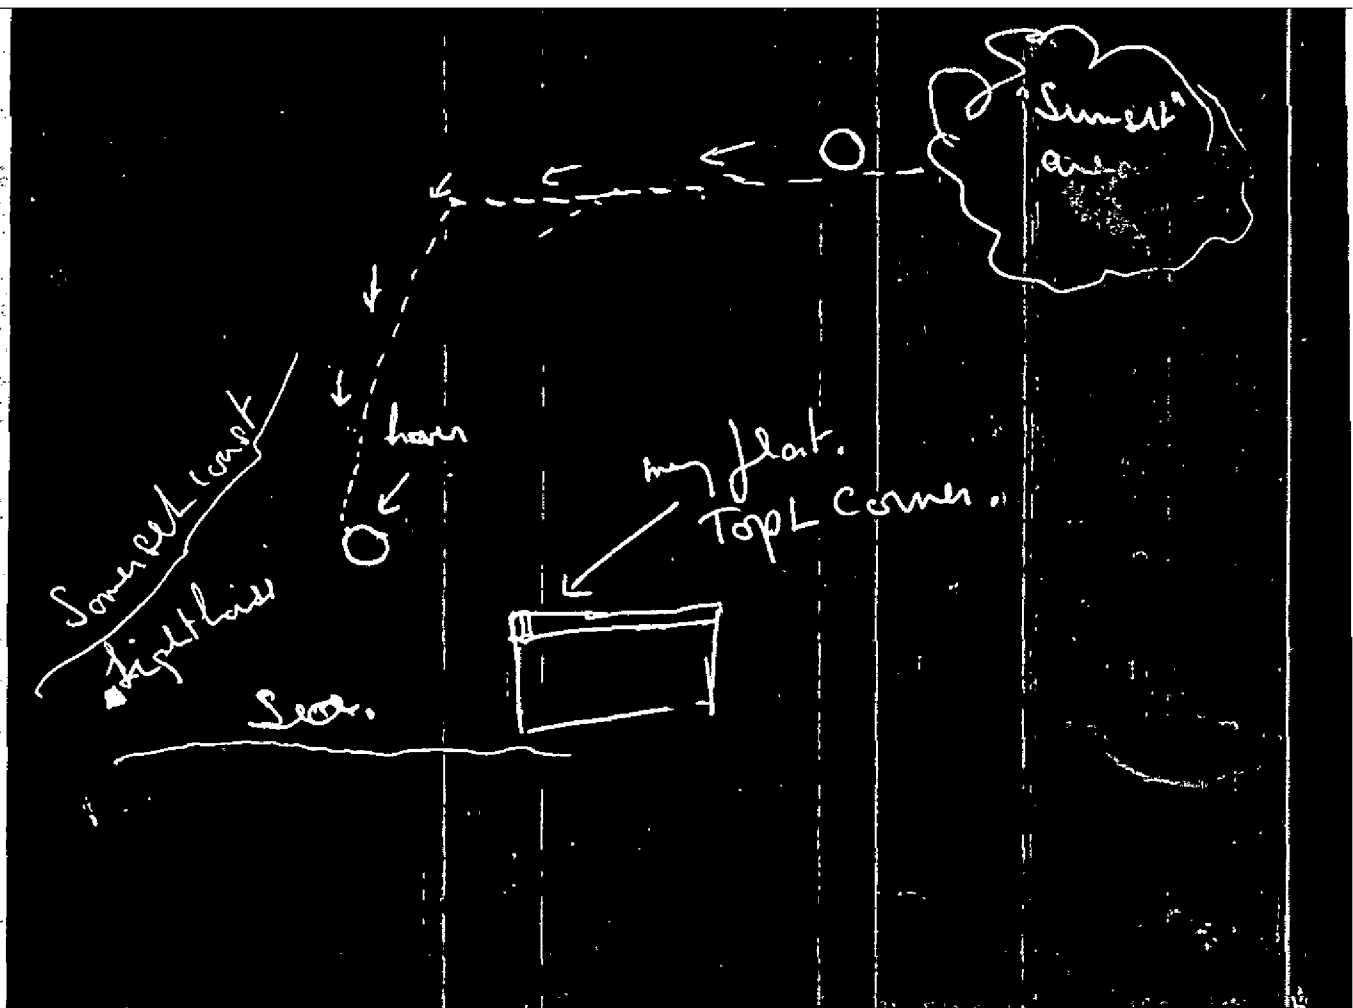 Sunset"
area
hover
my flat.
Top L corner.
Somerset coast
Lighthouse
Sea.